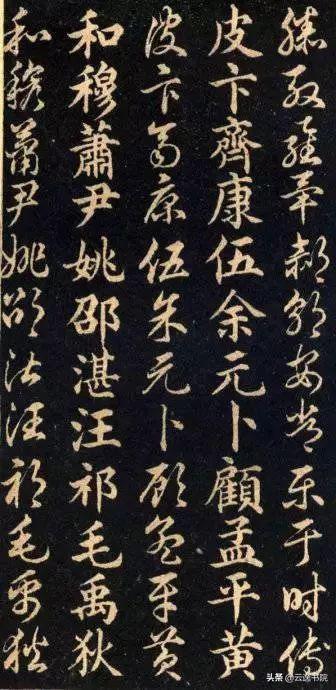 滕殷羅畢郝鄔安常樂于時傅
皮卞齊康伍余元卜顧孟平黃
皮卞齊康伍余元卜顧孟平黃
和穆蕭尹姚邵湛汪祁毛禹狄
和穆蕭尹姚邵湛汪祁毛禹狄
头条 @云逸书院